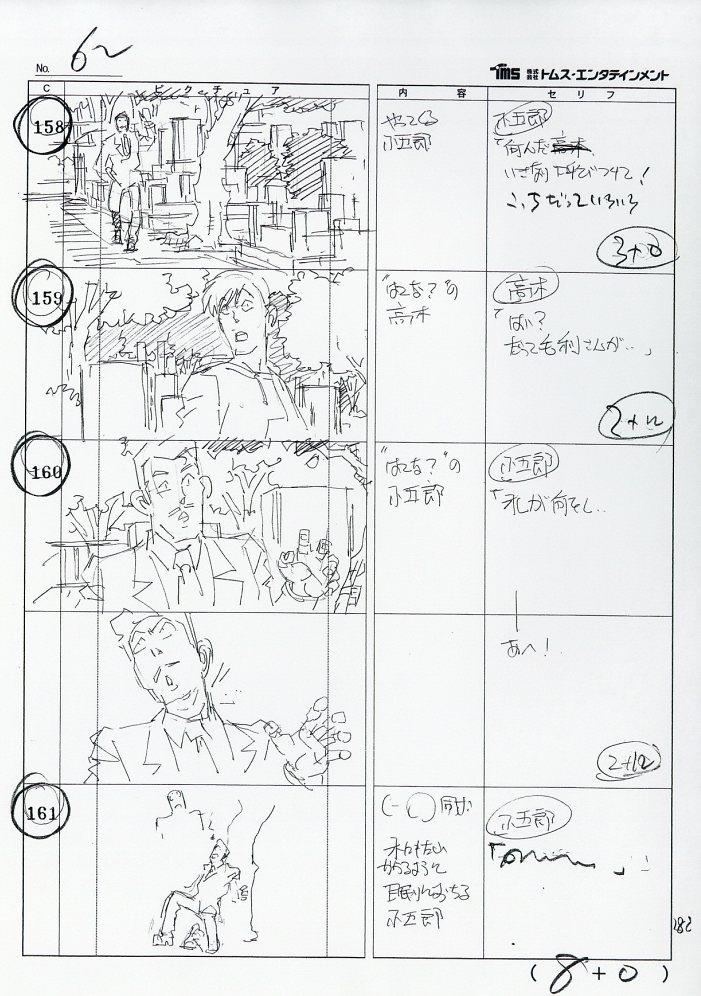 No. 62
TMS 株式会社 トムス・エンタテインメント
C ピクチュア 内 容 セリフ
158
やってくる
小五郎
小五郎
「何んだ高木、
いきなり呼びつけて!
こっちだっていろいろ
3+0
159
"はてな?"の
高木
高木
「はい?
だって毛利さんが‥」
160
"はてな?"の
小五郎
小五郎
「私が何をし‥
あへ!
2+12
161
小五郎
眠りにおちる
小五郎
182
(8+0)